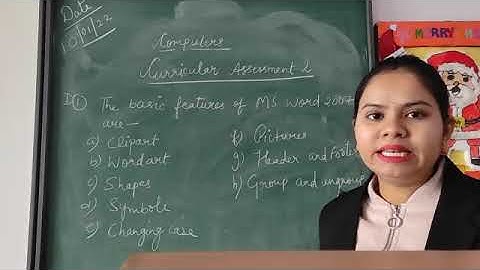 Date
10/01/22
Computers
Curricular Assessment 2
I ① The basic features of MS Word 2007
are—
a) Clipart
b) Wordart
c) Shapes
d) Symbols
e) Changing case
f) Pictures
g) Header and Footer
h) Group and ungroup
MERRY